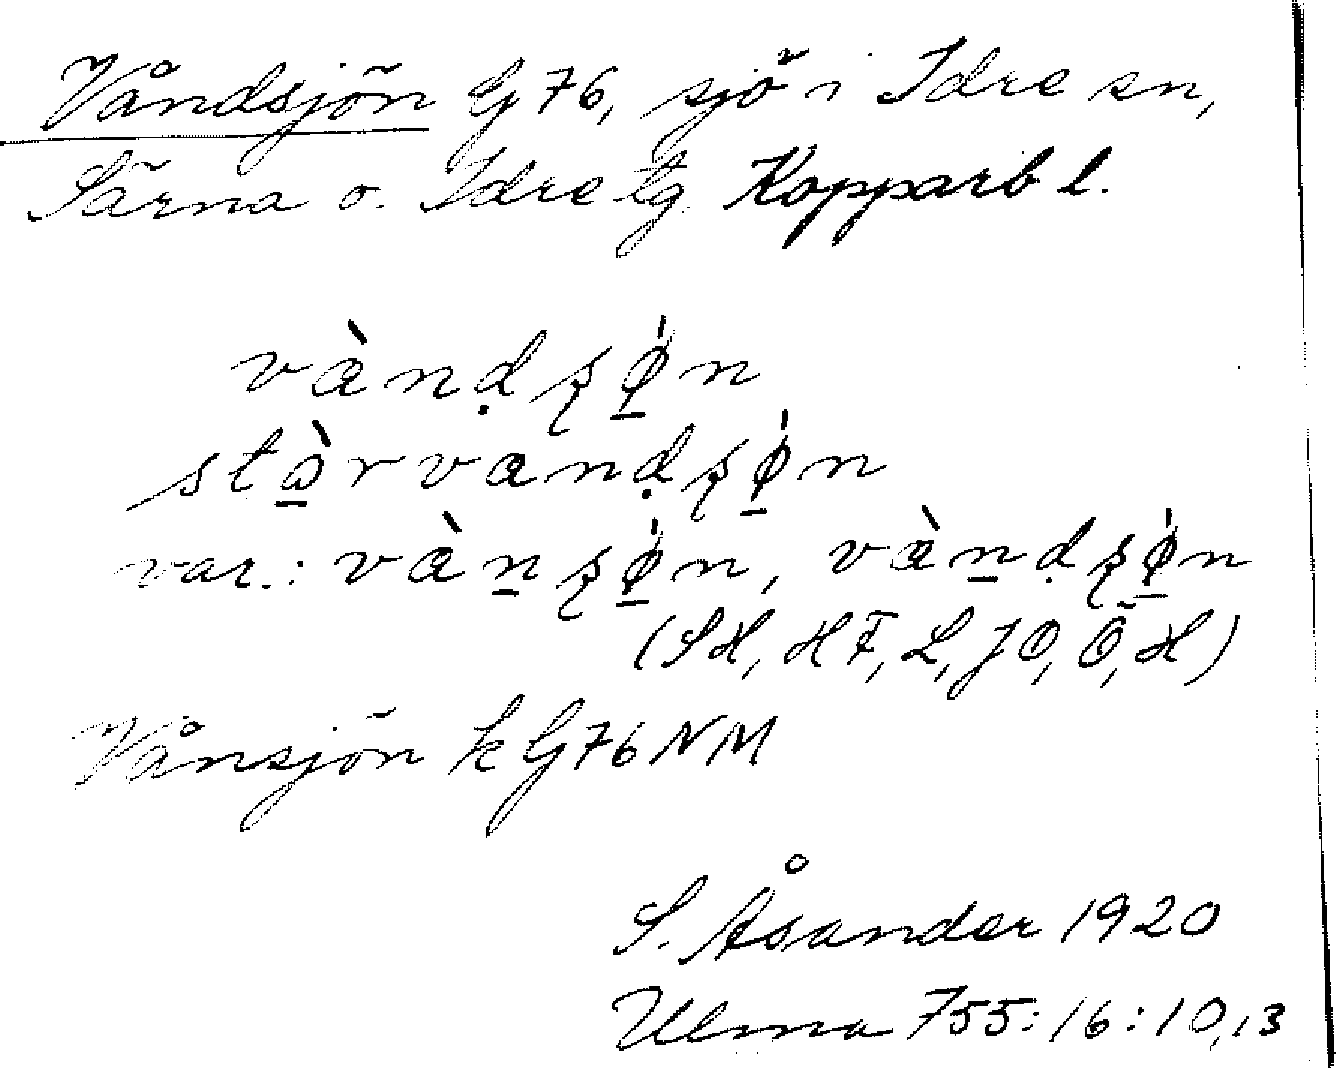 Våndsjön G 76, sjö i Idre sn,
Särna o. Idre tg. Kopparb l.
vànḍʂǿ̱n
stɷ̱̀rvanḍʂǿ̱n
var.: vàn̠ʂǿ̱n, vàn̠ḍʂǿ̱n
(SH, HF, L, JO, Ö, H)
Vånsjön k G76 NM
S. Åsander 1920
Ulma 755:16:10,13